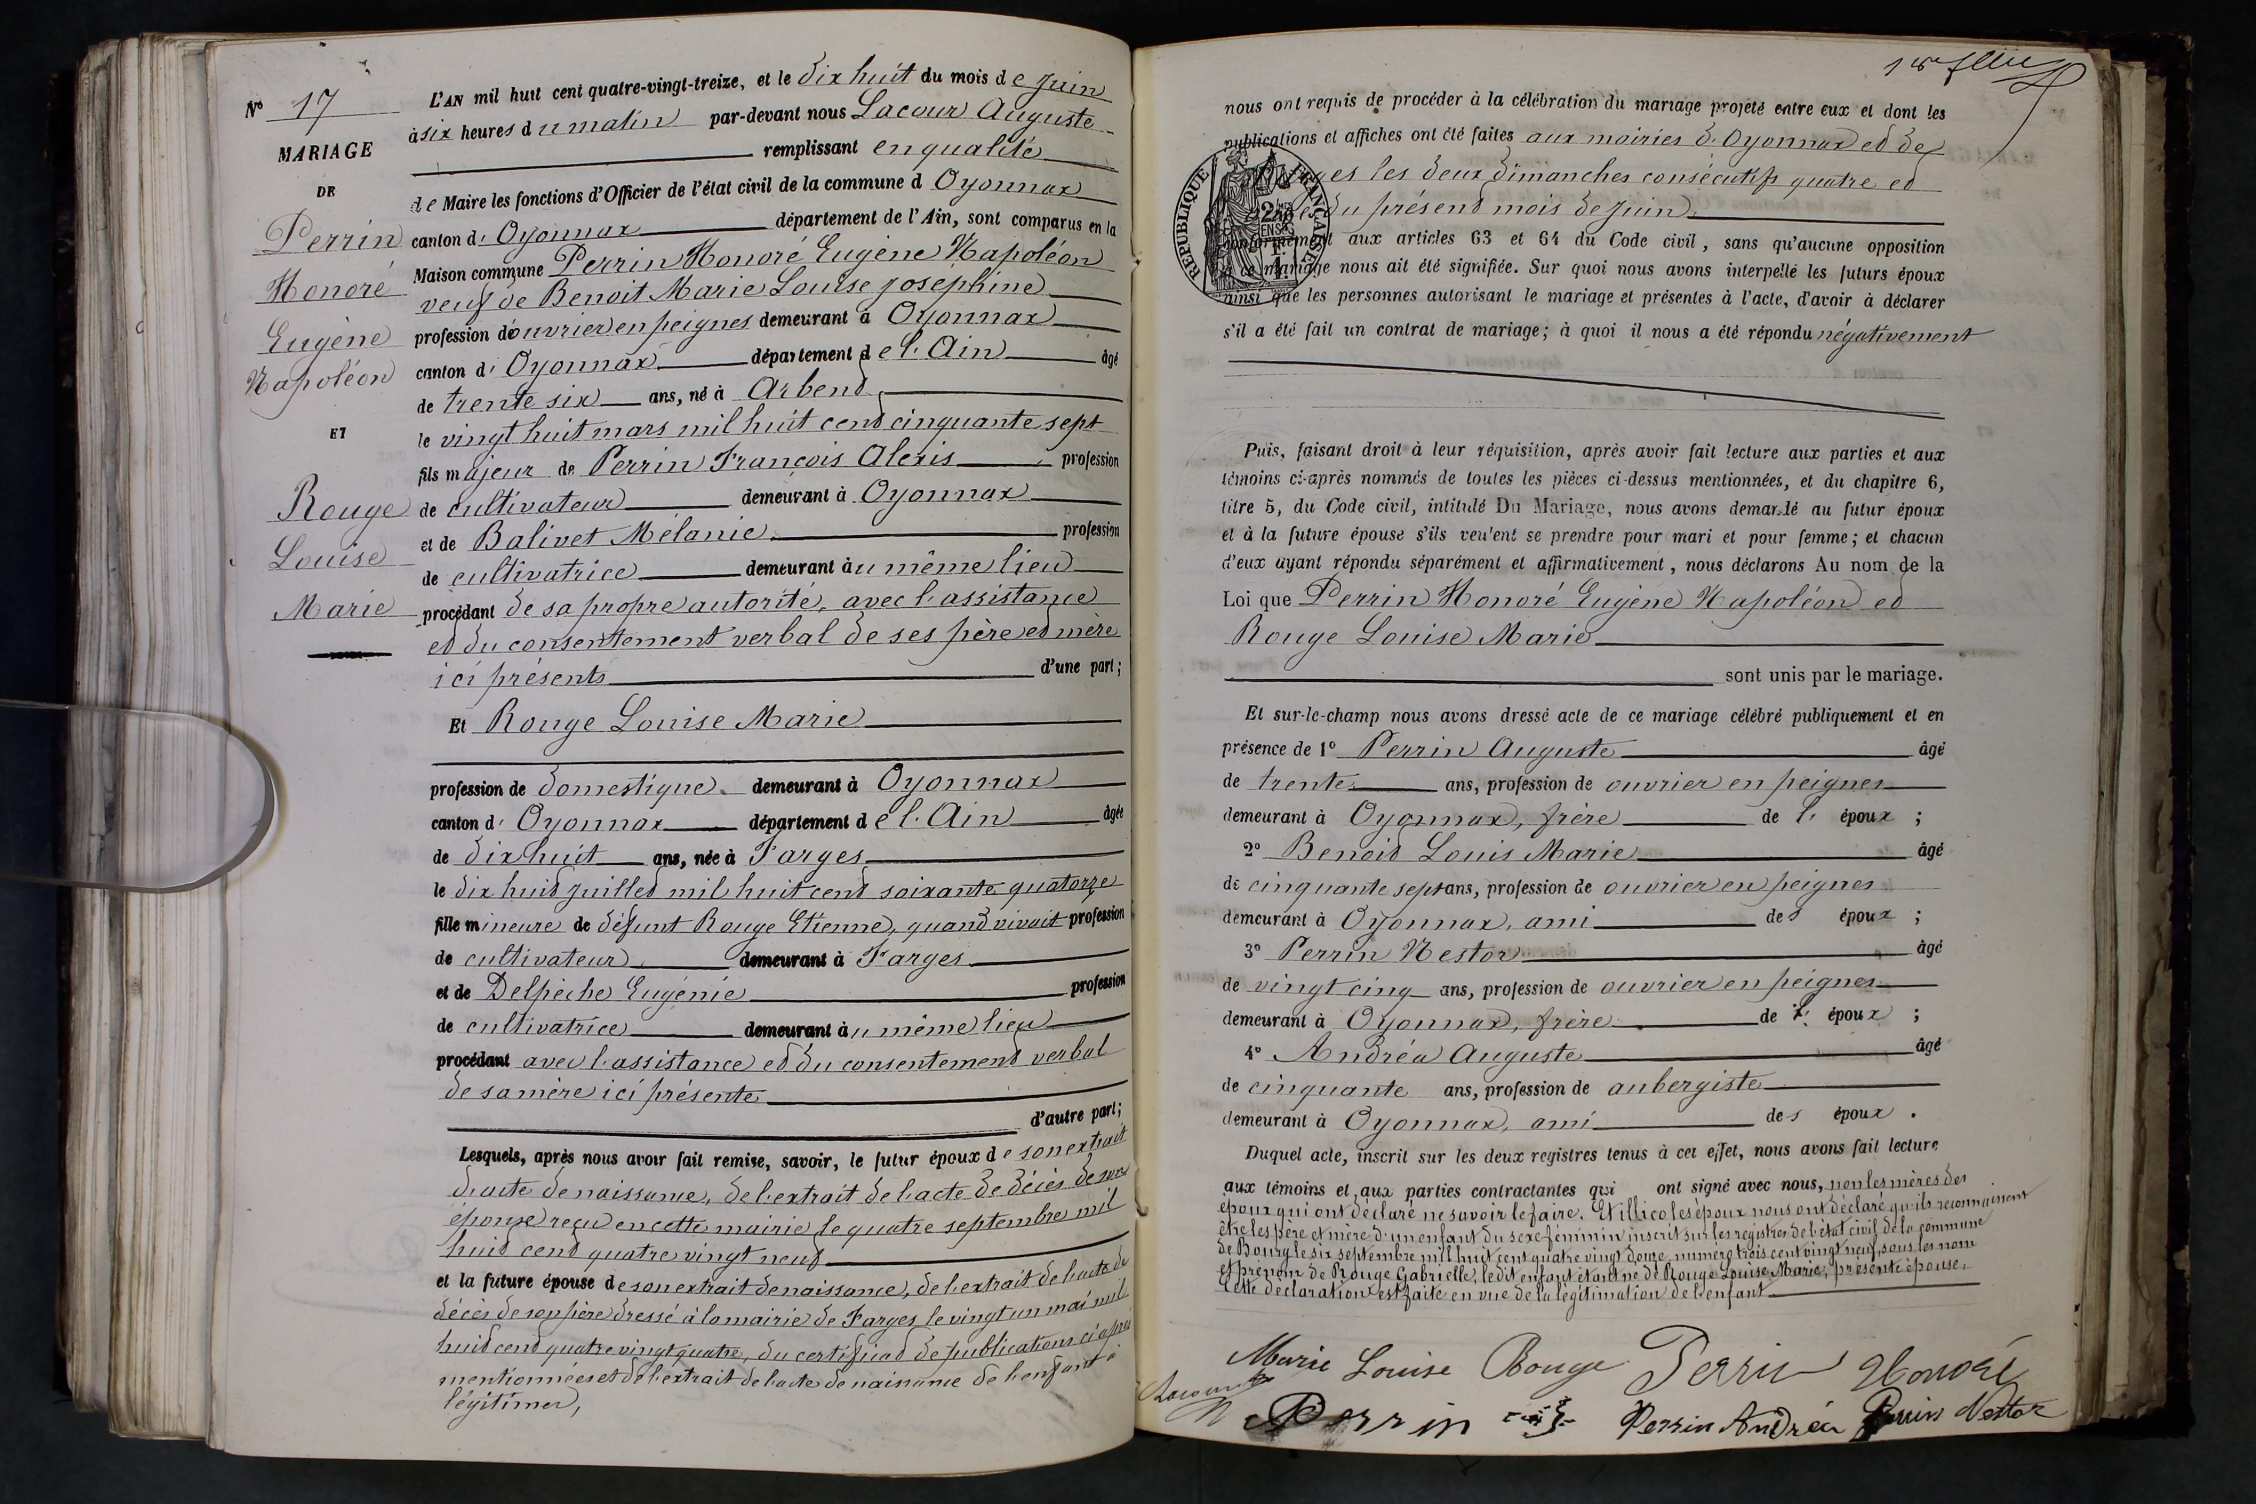 N° 17
MARIAGE
DE
Perrin
Honoré
Eugène
Napoléon
ET
Rouge
Louise
Marie
L'AN mil huit cent quatre-vingt-treize, et le dix huit du mois de juin
à six heures du matin par-devant nous Lacour Auguste
remplissant en qualité
de Maire les fonctions d'Officier de l'état civil de la commune d Oyonnax
canton d' Oyonnax département de l'Ain, sont comparus en la
Maison commune Perrin Honoré Eugène Napoléon
veuf de Benoit Marie Louise joséphine
profession d'ouvrier en peignes demeurant à Oyonnax
canton d' Oyonnax département de l'Ain âgé
de trente six ans, né à Arbent
le vingt huit mars mil huit cent cinquante sept
fils majeur de Perrin François Alexis profession
de cultivateur demeurant à Oyonnax
et de Balivet Mélanie profession
de cultivatrice demeurant au même lieu
procédant de sa propre autorité, avec l'assistance
et du consentement verbal de ses père et mère
ici présents d'une part;
Et Rouge Louise Marie
profession de domestique demeurant à Oyonnax
canton d' Oyonnax département de l'Ain âgée
de dix huit ans, née à Farges
le dix huit juillet mil huit cent soixante quatorze
fille mineure de défunt Rouge Etienne, quand vivait profession
de cultivateur demeurant à Farges
et de Delpèche Eugénie profession
de cultivatrice demeurant au même lieu
procédant avec l'assistance et du consentement verbal
de sa mère ici présente
d'autre part;
Lesquels, après nous avoir fait remise, savoir, le futur époux de son extrait
d'acte de naissance, de l'extrait de l'acte de décès de son
épouse reçu en cette mairie le quatre septembre mil
huit cent quatre vingt neuf
et la future épouse de son extrait de naissance, de l'extrait de l'acte de
décès de son père dressé à la mairie de Farges le vingt un mai mil
huit cent quatre vingt quatre, du certificat de publications ci après
mentionnées et de l'extrait de l'acte de naissance de l'enfant à
légitimer,
nous ont requis de procéder à la célébration du mariage projeté entre eux et dont les
publications et affiches ont été faites aux mairies d'Oyonnax et de
Farges les deux dimanches consécutifs quatre et
du présent mois de juin,
conformément aux articles 63 et 64 du Code civil, sans qu'aucune opposition
à ce mariage nous ait été signifiée. Sur quoi nous avons interpellé les futurs époux
ainsi que les personnes autorisant le mariage et présentes à l'acte, d'avoir à déclarer
s'il a été fait un contrat de mariage; à quoi il nous a été répondu négativement
RÉPUBLIQUE FRANÇAISE
Puis, faisant droit à leur réquisition, après avoir fait lecture aux parties et aux
témoins ci-après nommés de toutes les pièces ci-dessus mentionnées, et du chapitre 6,
titre 5, du Code civil, intitulé Du Mariage, nous avons demandé au futur époux
et à la future épouse s'ils veulent se prendre pour mari et pour femme; et chacun
d'eux ayant répondu séparément et affirmativement, nous déclarons Au nom de la
Loi que Perrin Honoré Eugène Napoléon et
Rouge Louise Marie
sont unis par le mariage.
Et sur-le-champ nous avons dressé acte de ce mariage célébré publiquement et en
présence de 1° Perrin Auguste âgé
de trente ans, profession de ouvrier en peignes
demeurant à Oyonnax, frère de l' époux ;
2° Benoit Louis Marie âgé
de cinquante sept ans, profession de ouvrier en peignes
demeurant à Oyonnax, ami des époux ;
3° Perrin Nestor âgé
de vingt cinq ans, profession de ouvrier en peignes
demeurant à Oyonnax, frère de l' époux ;
4° Andréa Auguste âgé
de cinquante ans, profession de aubergiste
demeurant à Oyonnax, ami des époux .
Duquel acte, inscrit sur les deux registres tenus à cet effet, nous avons fait lecture
aux témoins et aux parties contractantes qui ont signé avec nous, non les mères des
époux qui ont déclaré ne savoir le faire. Et illico les époux nous ont déclaré qu'ils reconnaissent
être les père et mère d'un enfant du sexe féminin inscrit sur les registres de l'état civil de la commune
de Bourg le six septembre mil huit cent quatre vingt douze, numéro trois cent vingt neuf, sous les nom
et prénom de Rouge Gabrielle, le dit enfant étant né de Rouge Louise Marie, présente épouse.
Cette déclaration est faite en vue de la légitimation de l'enfant
Marie Louise Rouge Perrin Honoré
Lacour
Perrin Perrin Andréa Perrin Nestor